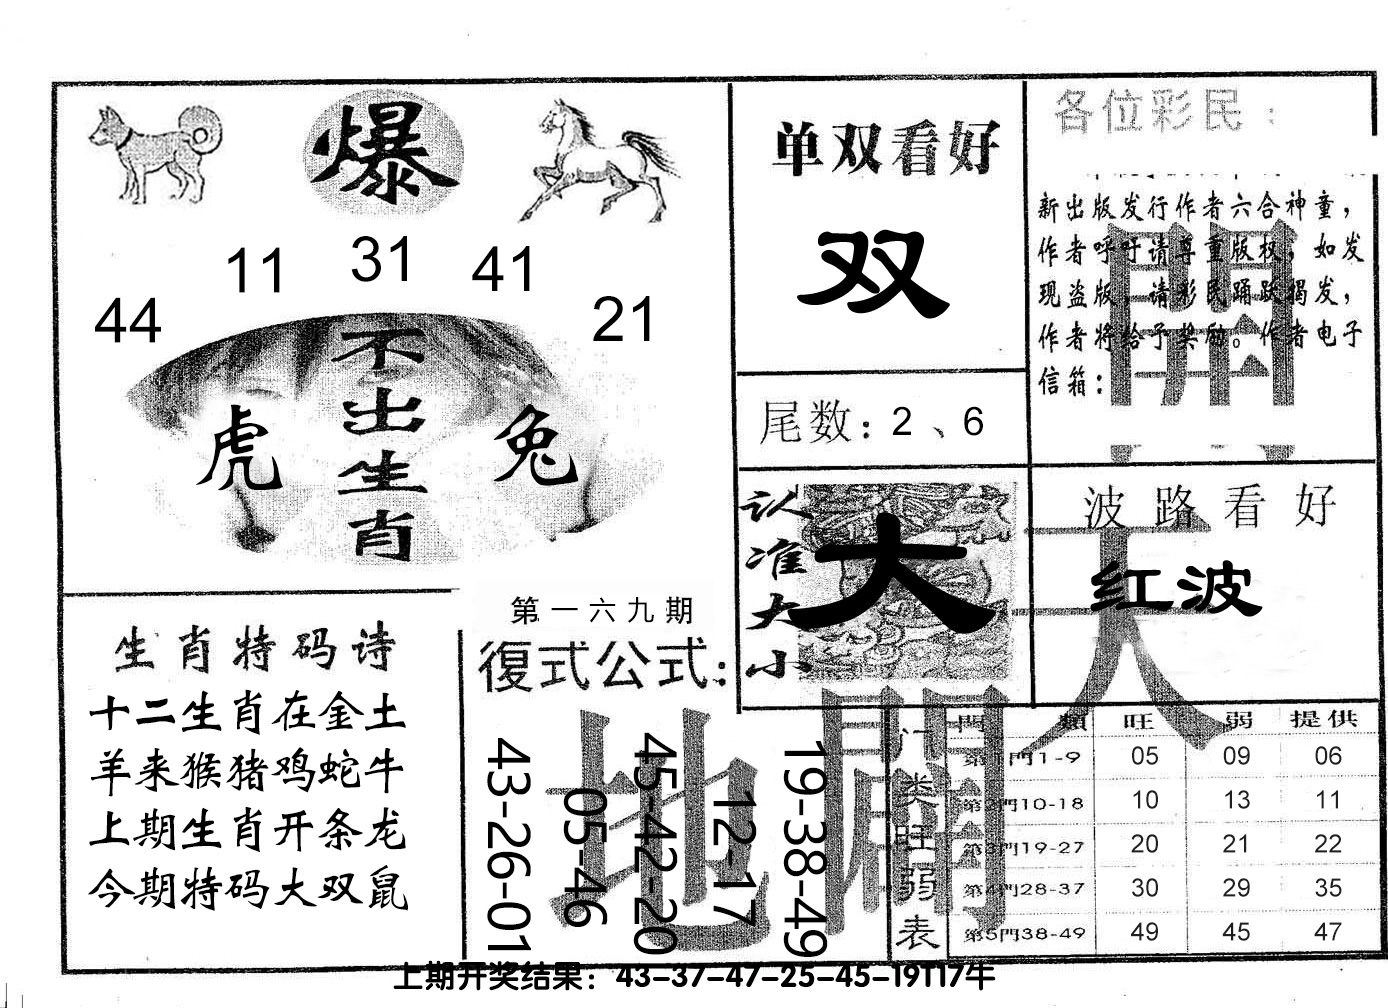 爆
44 11 31 41 21
不出生肖
虎 兔
单双看好
双
尾数：2、6
各位彩民：
新出版发行作者六合神童，
作者呼吁请尊重版权，如发
现盗版，请彩民踊跃揭发，
作者将给予奖励。作者电子
信箱：
認准大小
大
波路看好
红波
生肖特码诗
十二生肖在金土
羊来猴猪鸡蛇牛
上期生肖开条龙
今期特码大双鼠
第一六九期
復式公式：
43-26-01
05-46
45-42-20
12-17
19-38-49
天
開
地
門类旺弱表
門類 旺 弱 提供
第1門1-9 05 09 06
第2門10-18 10 13 11
第3門19-27 20 21 22
第4門28-37 30 29 35
第5門38-49 49 45 47
上期开奖结果：43-37-47-25-45-19T17牛